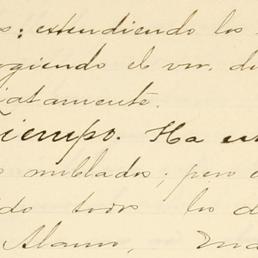 s; extendiendo los
rgiendo el vor. di
iatamente.
Tiempo. Ha es
s nublados; pero
do todos los d
Alamo,